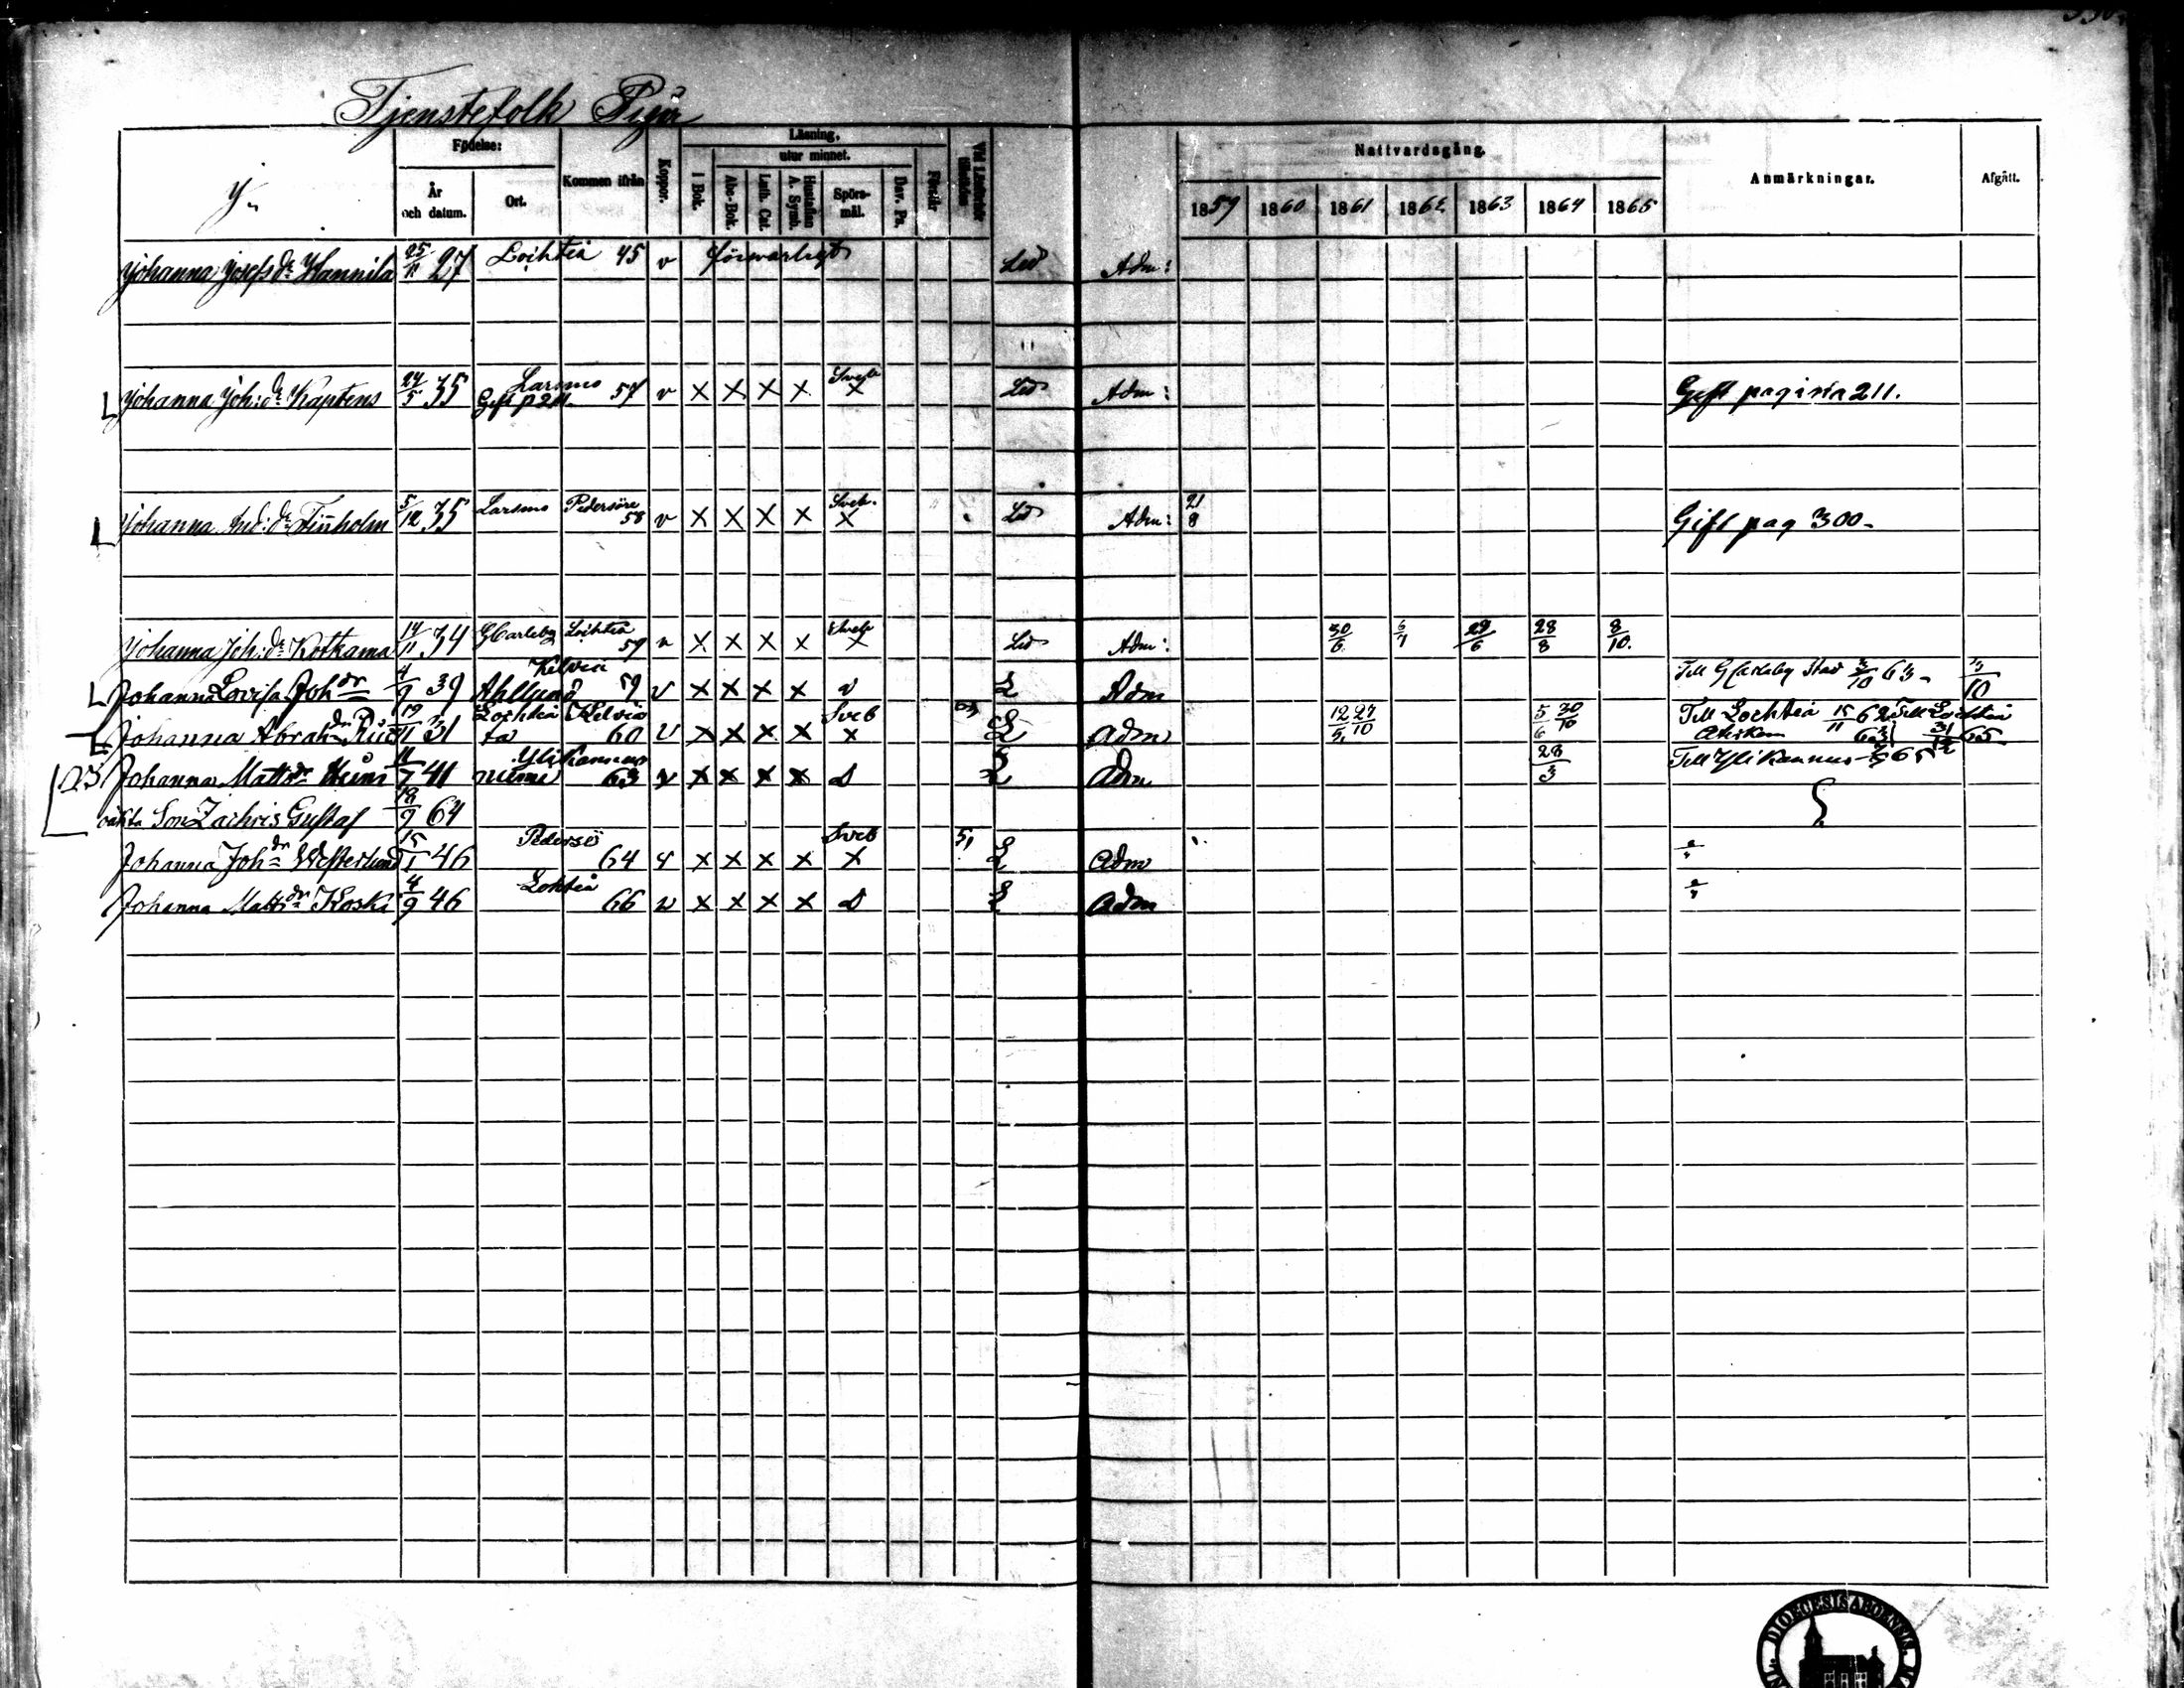 Tjenstefolk Pigor
Födelse: Kommen ifrån Koppor. Läsning, Nattvardsgång. Anmärkningar. Afgått.
utur minnet.
År och datum. Ort. I Bok. Abc-Bok. Luth. Cat. Hustaflan A. Symb. Spörsmål. Dav. Ps. Förstår
1859 1860 1861 1862 1863 1864 1865
Johanna Josefs dr Hannila 25/11 27 Lochteå 45 v försvarligt Led Adm:
Johanna Joh: dr Kaptens 24/5 35 Larsmo 57 v × × × × Sveb × Led Adm: Gift pagina 211.
Gift p 211.
Johanna And: dr Finholm 5/12 35 Larsmo Pedersöre 58 v × × × × Sveb. × Led Adm: 21/8 Gift pag 300-
Johanna Joh: dr Kotkama 14/11 34 GCarleby Lochteå 59 v × × × × Sveb × Led Adm: 30/6 6/7 29/6 28/8 8/10.
Johanna Lovisa Joh dr Ahllund 4/9 39 Kelviå 59 v × × × × v L Adm Till GCarleby Stad 63
Johanna Abrah dr 31 Lochteå Kelviå 60 v × × × × Sveb × L Adm 12/5 27/10 5/6 30/10 Till Lochteå 15/11 62 Till Lochteå
63 31/12 65
Johanna Matts dr 11/7 41 Yli Kannus 63 v × × × × L Adm 28/3 Till Yli Kannus 65
oäkta Son Zachris Gustaf 18/9 64
Johanna Joh dr Westerlund 15/1 46 Pedersö 64 v × × × × Sveb × L Adm
Johanna Matts dr Koski 4/9 46 Lohteå 66 v × × × × L Adm
DIOECESIS ABOENSIS